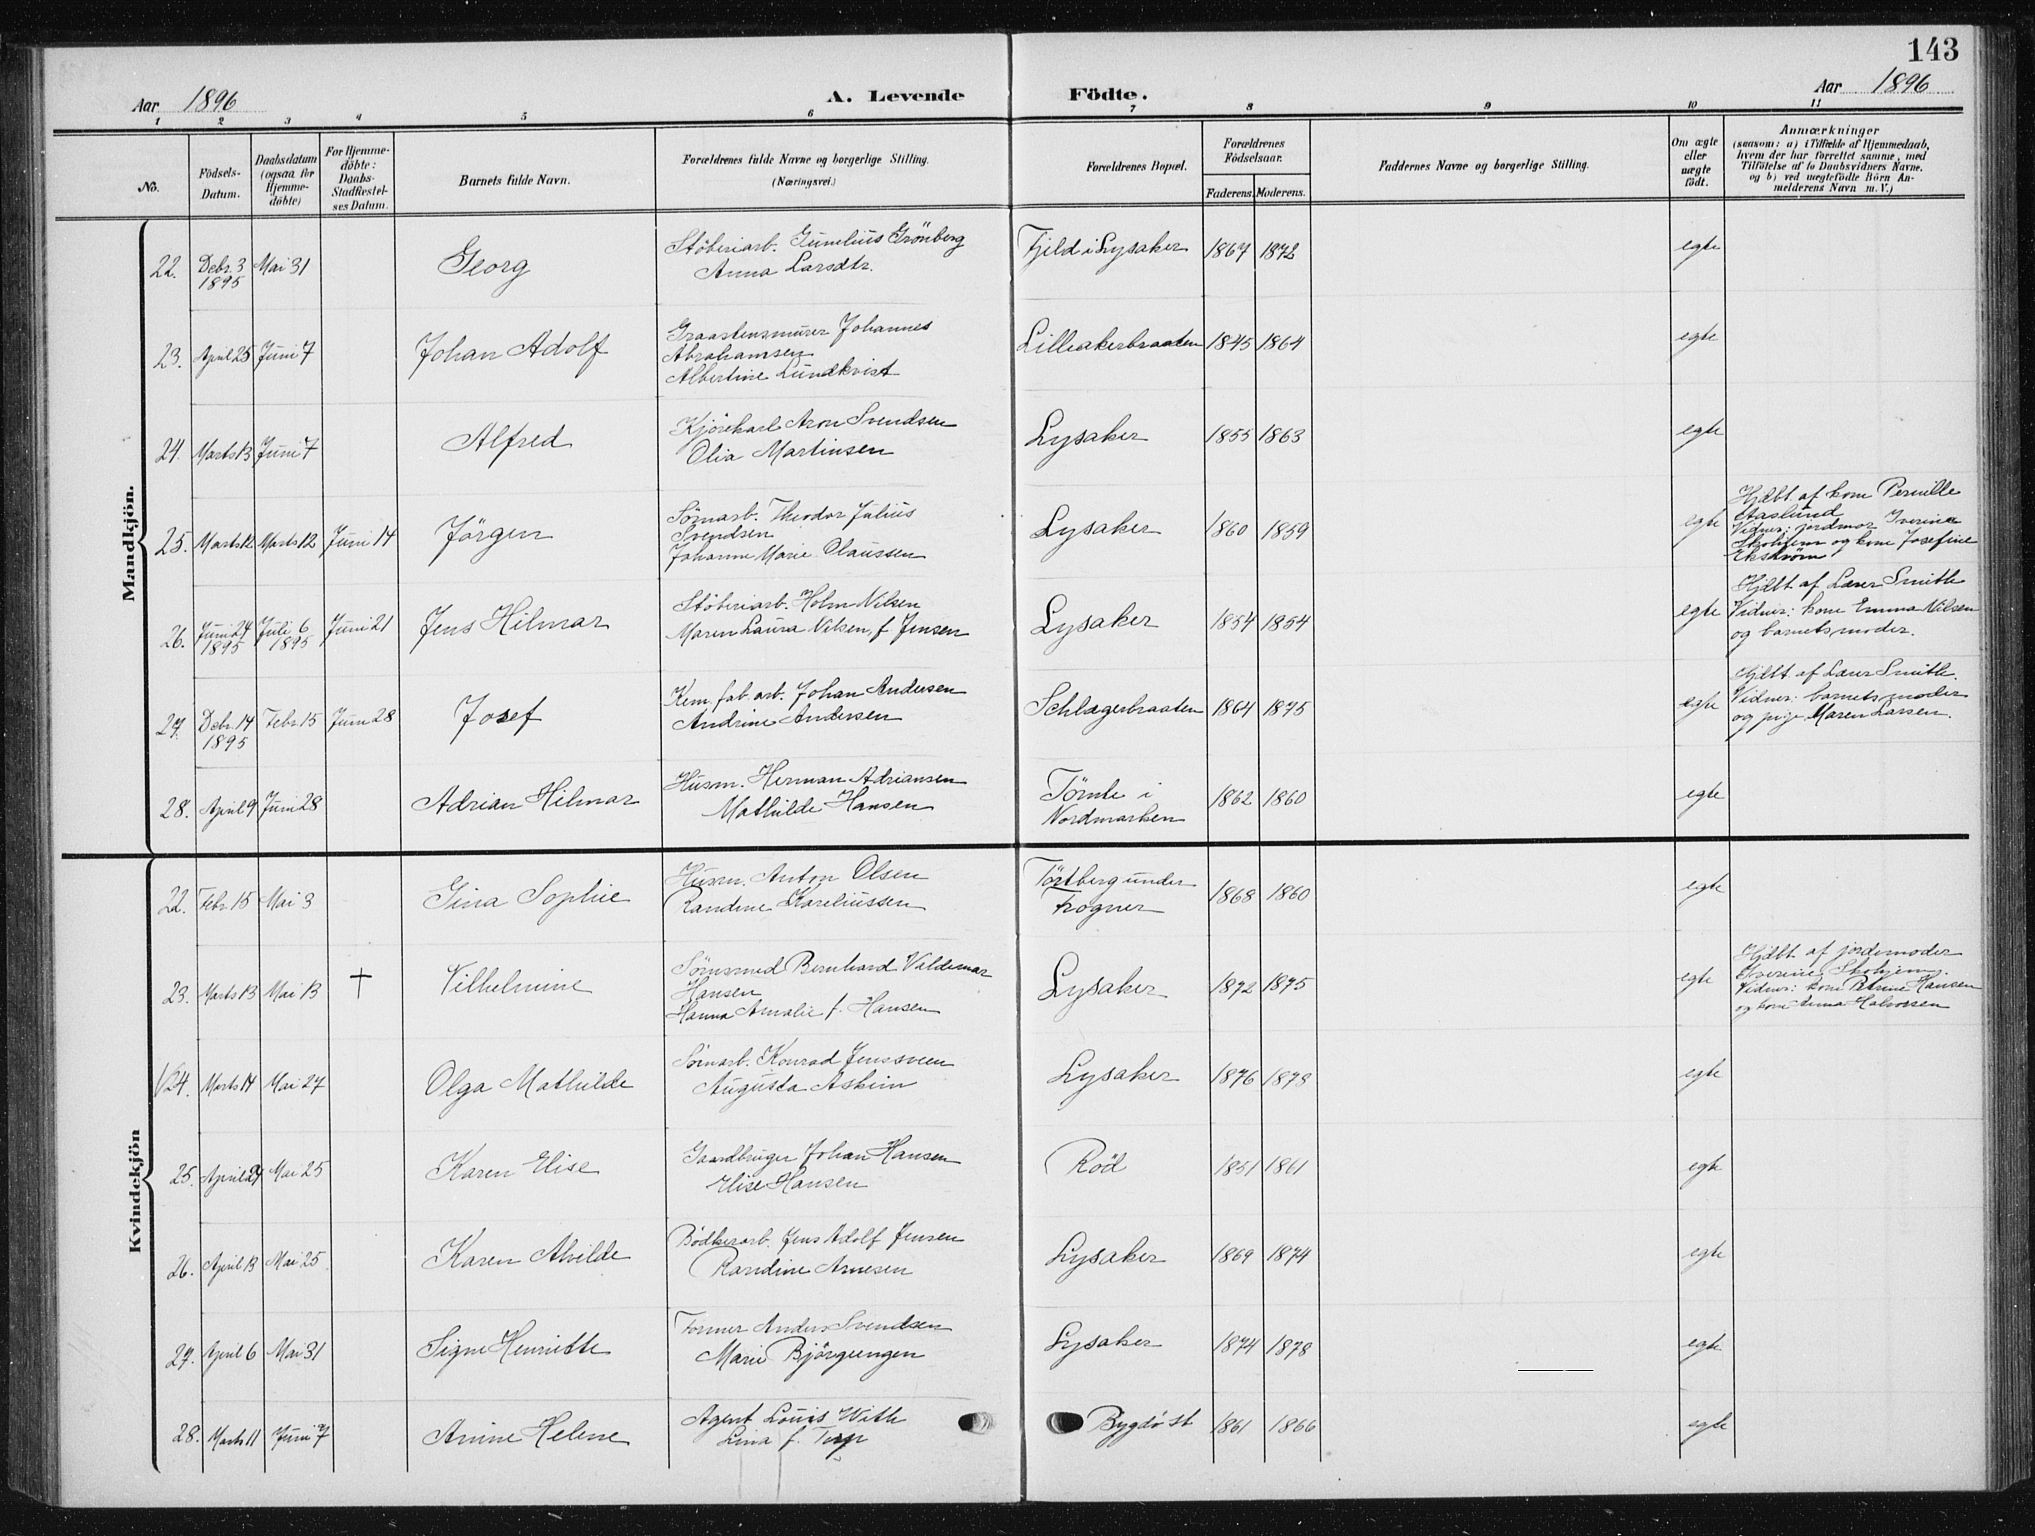 143
Aar 1896 A. Levende Födte. Aar 1896
1 2 3 4 5 6 7 8 9 10 11
No. Födsels-Datum. Daabsdatum (ogsaa för Hjemme-döbte) For Hjemme-döbte: Daabs-Stadfæstel-ses Datum. Barnets fulde Navn. Forældrenes fulde Navne og borgerlige Stilling. (Næringsvei.) Forældrenes Bopæl. Forældrenes Födselsaar. Faderens. Moderens. Faddernes Navne og borgerlige Stilling. Om ægte eller uægte födt. Anmærkninger (saasom: a) i Tilfælde af Hjemmedaab, hvem der har forrettet samme, med Tilföielse af to Daabsvidners Navne, og b) ved uægtefödte Börn An-melderens Navn m. V.)
Mandkjön.
22. Debr. 3 1895 Mai 31 Georg Støberiarb. Gunelius Grönberg
Anna Larsdtr. Fjeld i Lysaker 1867 1872 egte
23. April 25 Juni 7 Johan Adolf Graastensmurer Johannes
Abrahamsen
Albertine Lundkvist Lilleakerbraaten 1845 1864 egte
24. Marts 13 Juni 7 Alfred Kjørekarl Aron Svendsen
Olia Martinsen Lysaker 1855 1863 egte
25. Marts 12 Marts 12 Juni 14 Jörgen Sömarb. Theodor Julius
Svendsen
Johanne Marie Claussen Lysaker 1860 1859 egte Hjdbt af kone Pernille
Aaslund
Vidner: jordmor Iverine
Skohjem og kone Josefine
Ekstrøm
26. Juni 24 1895 Juli 6 1895 Juni 21 Jens Hilmar Støberiarb. Holm Nilsen
Maren Laura Nilsen, f. Jensen Lysaker 1854 1854 egte Hjdbt af Lærer Smith
Vidner: kone Emma Nilsen
og barnets moder.
27. Debr. 14 1895 Febr. 15 Juni 28 Josef Kem. fab. arb. Johan Andersen
Andrine Andersen Schlagerbraaten 1864 1875 egte Hjdbt af Lærer Smith.
Vidner: barnets moder
og pige Maren Larsen.
28. April 9 Juni 28 Adrian Hilmar Husm. Herman Adriansen
Mathilde Hansen Tømte i
Nordmarken 1862 1860 egte
Kvindekjön
22. Febr 15 Mai 3 Gina Sophie Husm. Anton Olsen
Randine Kareliussen Törtberg under
Frogner 1868 1860 egte
23. Marts 13 Mai 13 † Vilhelmine Sömsmed Bernhard Valdemar
Hansen
Hanna Amalie f. Hansen Lysaker 1872 1875 egte Hjdbt af jordemoder
Iverine Skohjem.
Vidner: kone Petrine Hansen
og kone Anna Halvorsen
24. Marts 14 Mai 27 Olga Mathilde Sömarb. Konrad Jenssveen
Augusta Askim Lysaker 1876 1878 egte
25. April 24 Mai 25 Karen Elise Gaardbruger Johan Hansen
Elise Hansen Röd 1851 1861 egte
26. April 13 Mai 25 Karen Alvilde Bödkerarb. Jens Adolf Jensen
Randine Arnesen Lysaker 1869 1874 egte
27. April 6 Mai 31 Signe Henriette Former Anders Svendsen
Marie Björgeengen Lysaker 1874 1878 egte
28. Marts 11 Juni 7 Anine Helene Agent Louis With
Lina f. Torp Bygdö st 1861 1866 egte